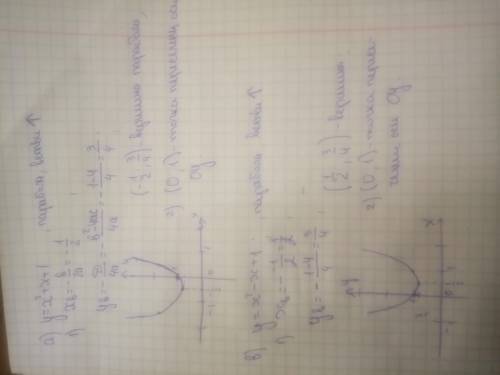 а) y = x² + x + 1, парабола, ветви ↑
1) xв = -b/2a = -1/2
yв = -D/4a = -(b² - 4ac)/4a = -(1-4)/4 = 3/4
(-1/2, 3/4) - вершина параболы,
2) (0, 1) - точка пересечен оси
Oy
y
x
-1 -1/2 0
в) y = x² - x + 1 парабола ветви ↑
1) xв = -(-1)/2 = 1/2
yв = -(1-4)/4 = 3/4
(1/2, 3/4) - вершина.
2) (0, 1) - точка пересе-
чения оси Oy
y
x
-1 0 1/2 1